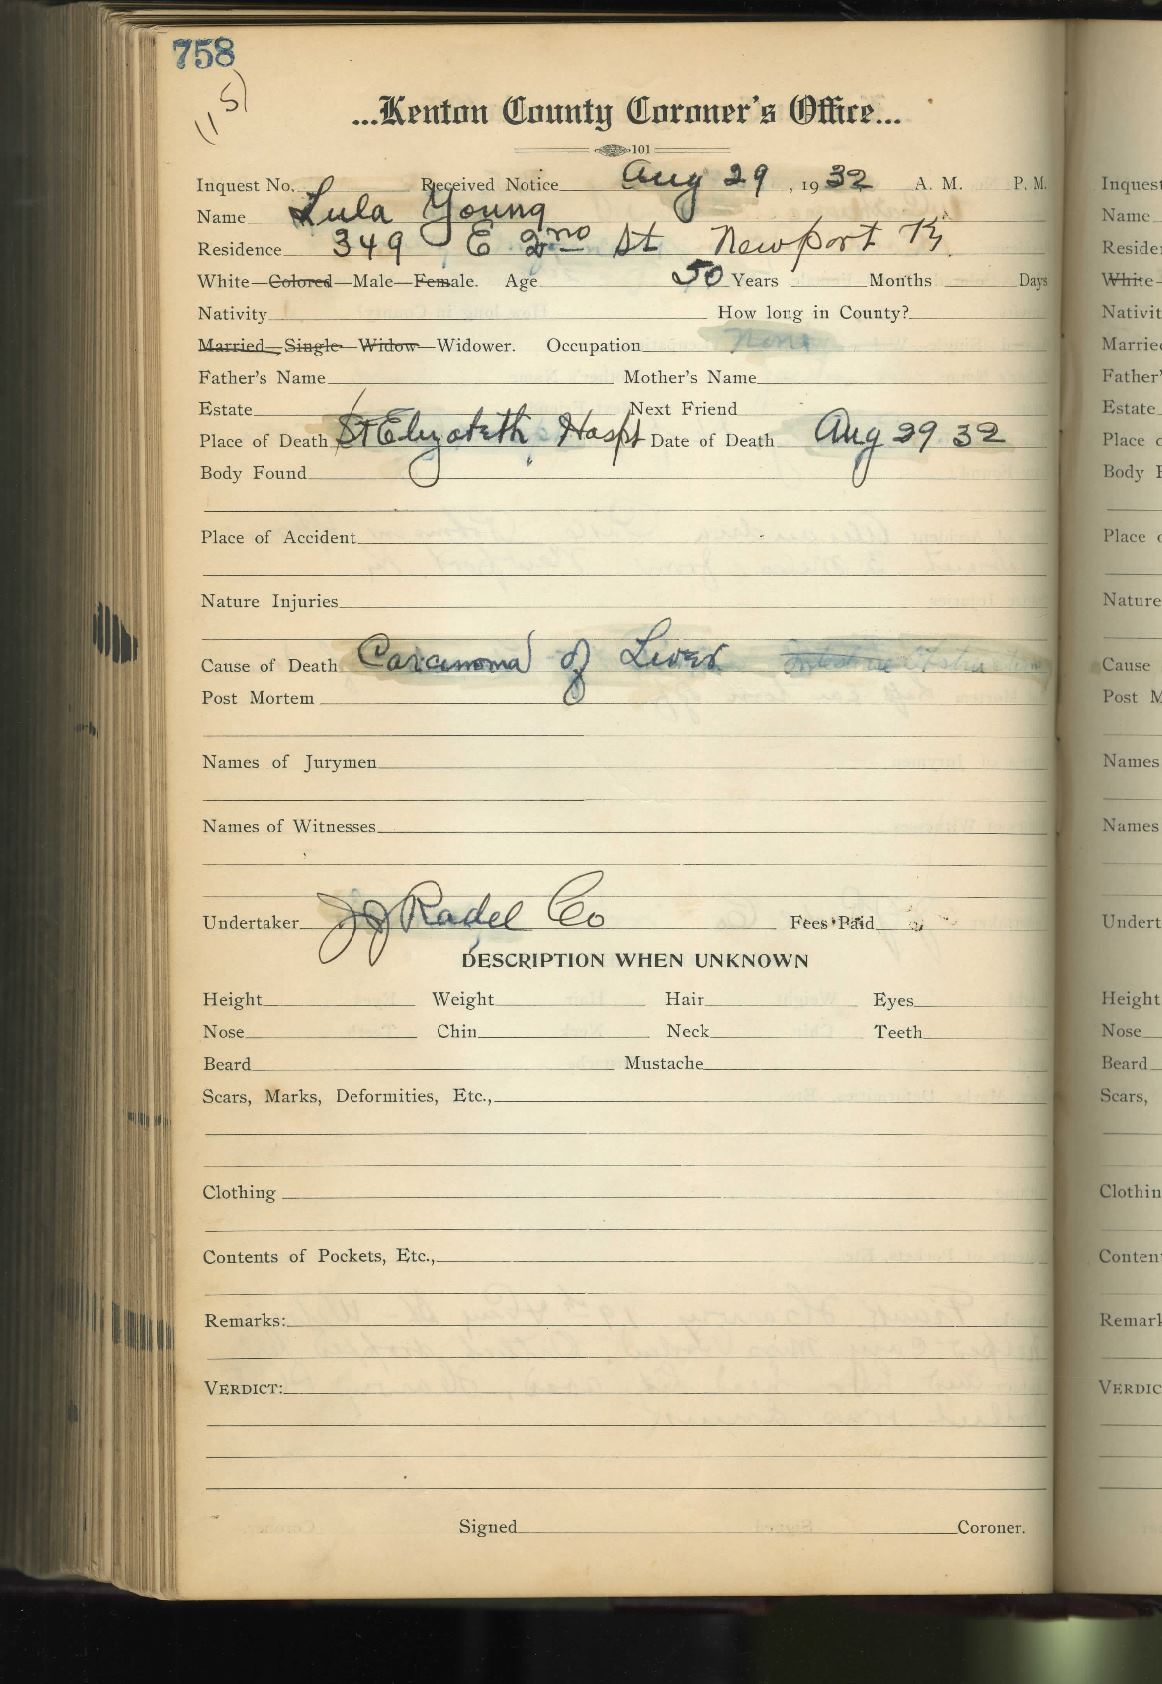 758
(15)
...Kenton County Coroner's Office...
101
Inquest No. Received Notice Aug 29, 1932 A. M. P. M.
Name Lula Young
Residence 349 E 2nd St Newport Ky
White—Colored—Male—Female. Age 50 Years Months Days
Nativity How long in County?
Married—Single—Widow—Widower. Occupation None
Father's Name Mother's Name
Estate Next Friend
Place of Death St Elizabeth Hospt Date of Death Aug 29 32
Body Found
Place of Accident
Nature Injuries
Cause of Death Carcinoma of Liver
Post Mortem
Names of Jurymen
Names of Witnesses
Undertaker JJ Radel Co Fees Paid
DESCRIPTION WHEN UNKNOWN
Height Weight Hair Eyes
Nose Chin Neck Teeth
Beard Mustache
Scars, Marks, Deformities, Etc.,
Clothing
Contents of Pockets, Etc.,
Remarks:
VERDICT:
Signed Coroner.
Inquest
Name
Reside
White
Nativit
Married
Father'
Estate
Place
Body
Place
Nature
Cause
Post M
Names
Names
Undert
Height
Nose
Beard
Scars,
Clothin
Conten
Remark
VERDIC